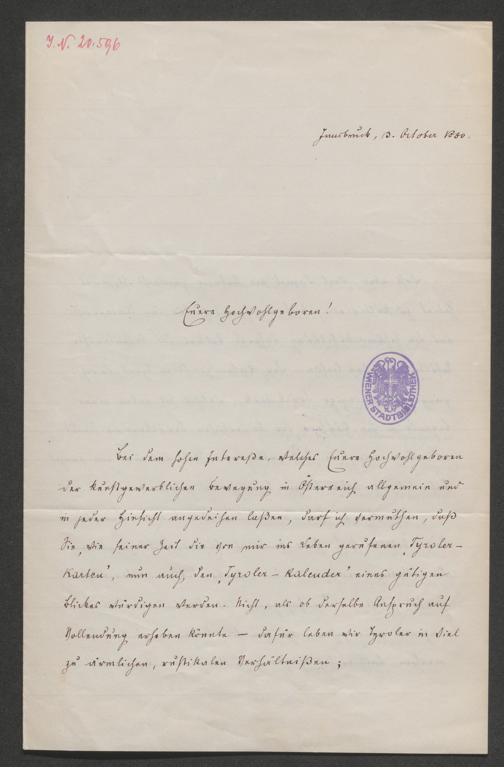 J. N. 20.596
Innsbruck, 3. October 1880.
Euere Hochwohlgeboren!
WIENER STADTBIBLIOTHEK
Bei dem hohen Interesse, welches Euere Hochwohlgeboren
der kunstgewerblichen Bewegung in Österreich allgemein und
in jeder Hinsicht angedeihen laßen, darf ich vermuthen, daß
Sie, wie seiner Zeit die von mir ins Leben gerufenen „Tyroler-
Karten", nun auch den „Tyroler-Kalender" eines gütigen
Blickes würdigen werden. Nicht, als ob derselbe Anspruch auf
Vollendung erheben könnte – dafür leben wir Tyroler in viel
zu ärmlichen, rustikalen Verhältnißen;